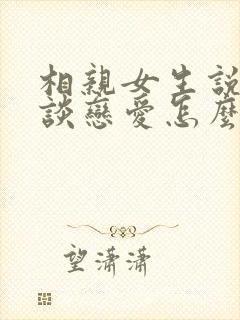 相親女生說
談戀愛怎麼
望瀟瀟